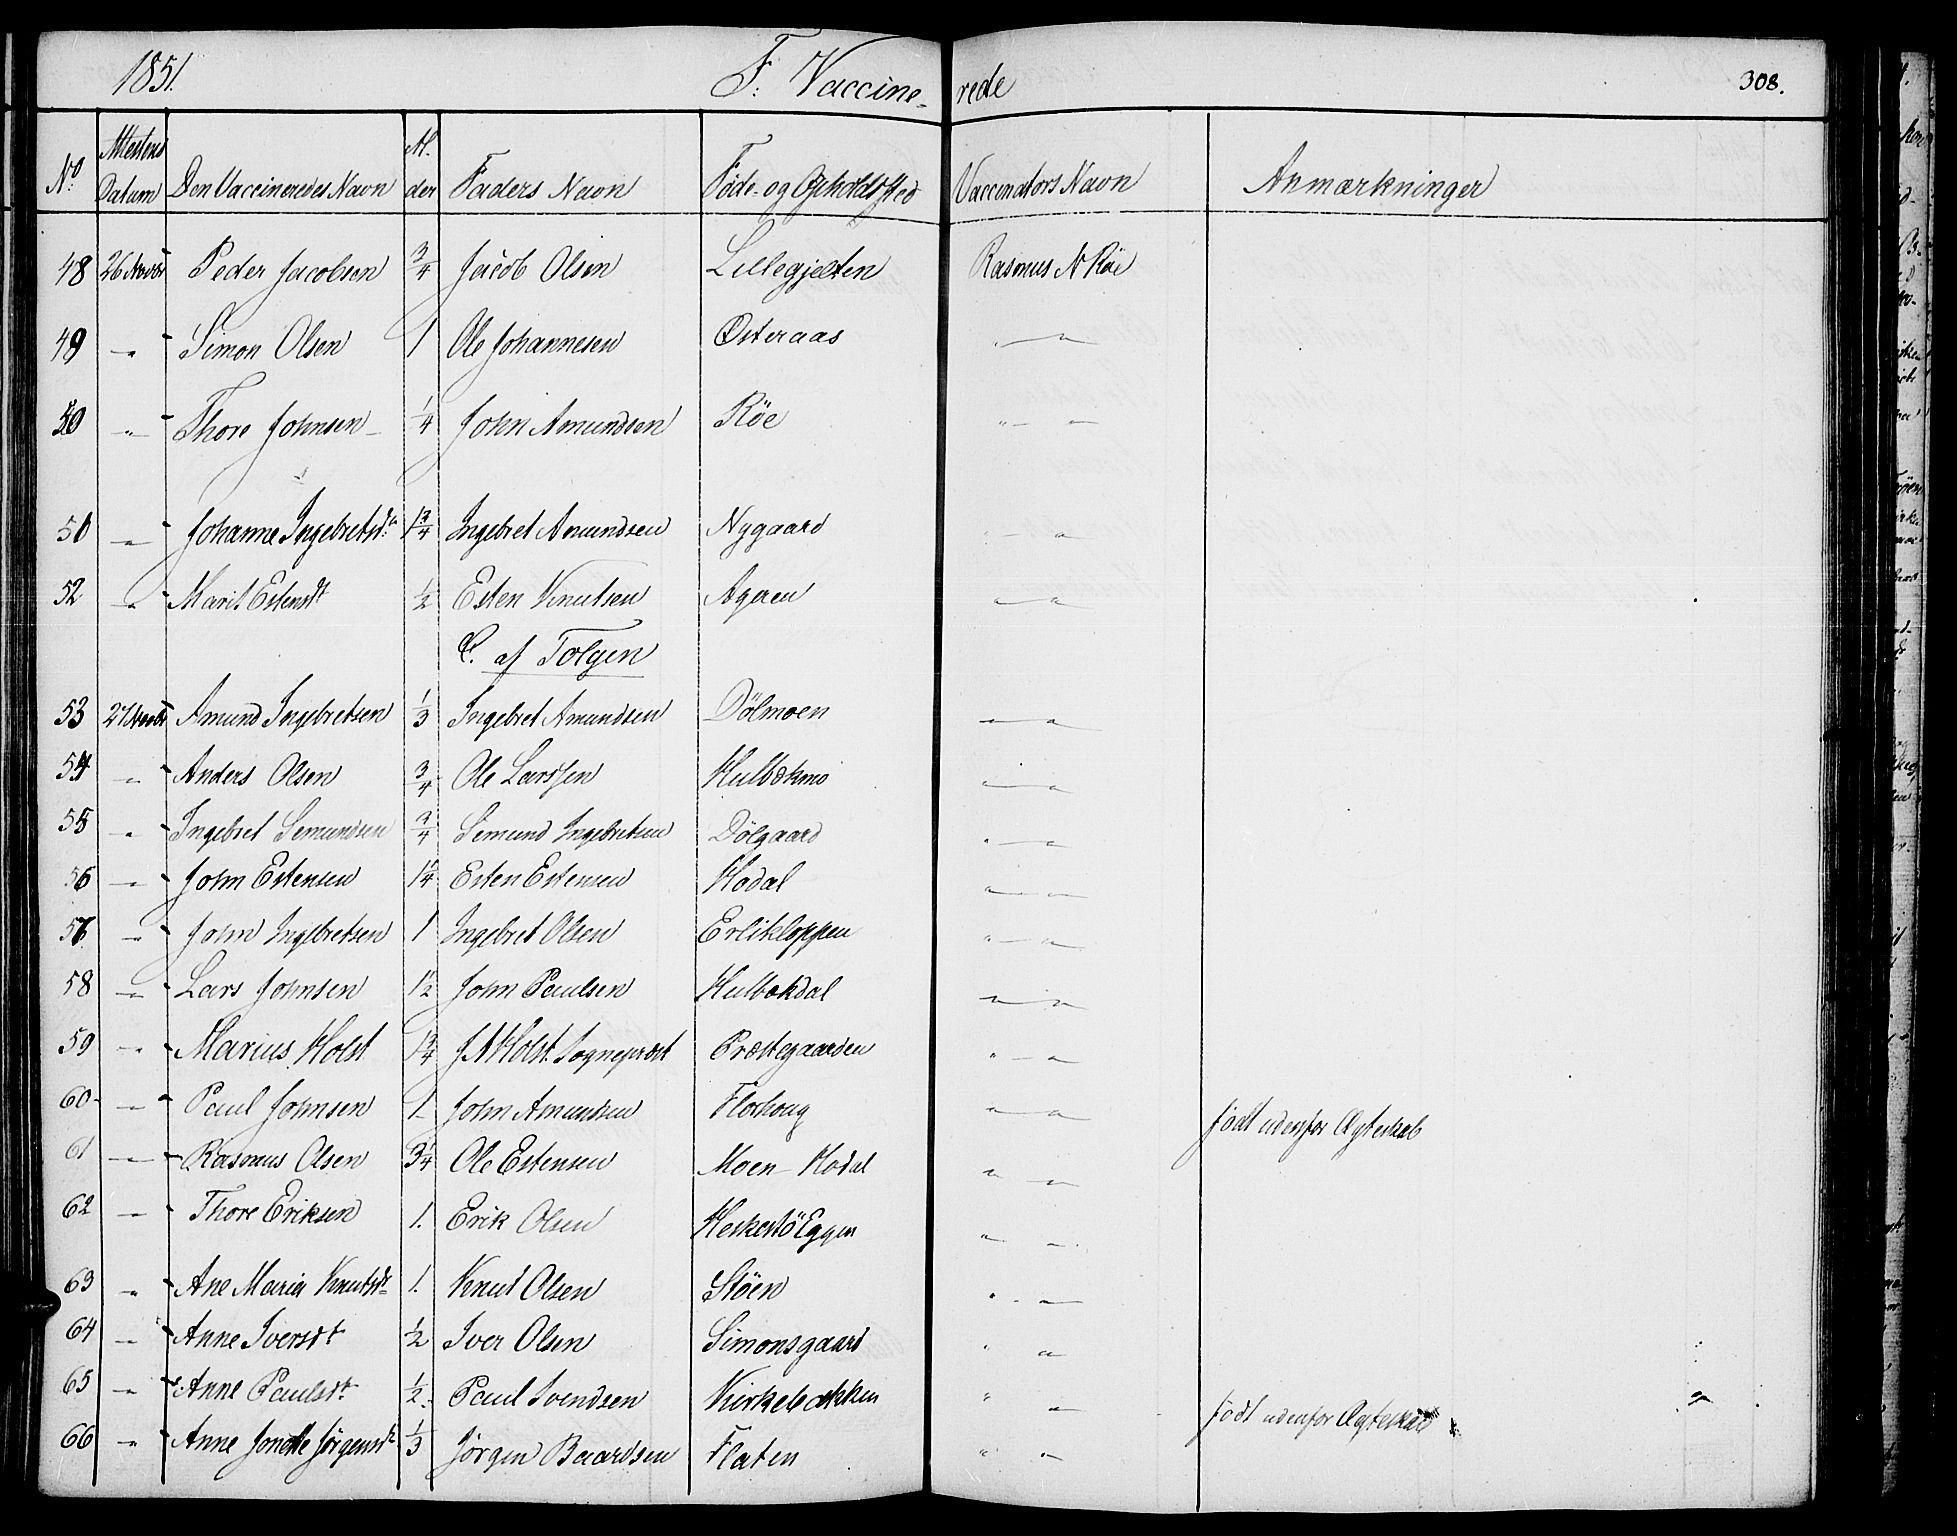 1851. F. Vaccine- rede 308.
No Attestens Datum Den Vaccineredes Navn Al. der Faders Navn Føde- og Opholdssted Vaccinators Navn Anmærkninger
48 26 Novbr Peder Jacobsen 3/4 Jacob Olsen Lillegjelten Rasmus N Röe
49 " Simon Olsen 1 Ole Johannesen Østeraas " "
50 " Thore Johnsen 1/4 John Amundsen Röe " "
51 " Johanne Ingebretsdtr 1 3/4 Ingebret Amundsen Nygaard " "
52 " Marit Estensdt 1/2 Esten Knutsen Ageren " "
C. af Tolgen
53 27 Novbr Amund Ingebretsen 1/3 Ingebret Amundsen Dölmoen " "
54 " Anders Olsen 3/4 Ole Larssen Hulbækmo " "
55 " Ingebret Semundsen 3/4 Semund Ingebretsen Dölgaard " "
56 " John Estensen 1 1/4 Esten Estensen Hodal " "
57 " John Ingebretsen 1 Ingebret Olsen Erlikloppen " "
58 " Lars Johnsen 1 1/2 John Paulsen Hulbækdal " "
59 " Marius Holst 1 3/4 J A Holst Sogneprest Præstegaarden " "
60 " Paul Johnsen 1 John Amundsen Florhoug " " født udenfor Ægteskab
61 " Rasmus Olsen 3 1/4 Ole Estensen Moen Hodal " "
62 " Thore Eriksen 1. Erik Olsen " "
63 " Ane Maria Knutsdt 1. Knud Olsen Stöen " "
64 " Anne Iversdt 1/2 Iver Olsen Simonsgaard " "
65 " Anne Paulsdt 1/2 Paul Svendsen Kirkebakken " " født udenfor Ægteskab
66 " Anne Jonette Jørgensdt 1/3 Jørgen Baardsen Flaten " "